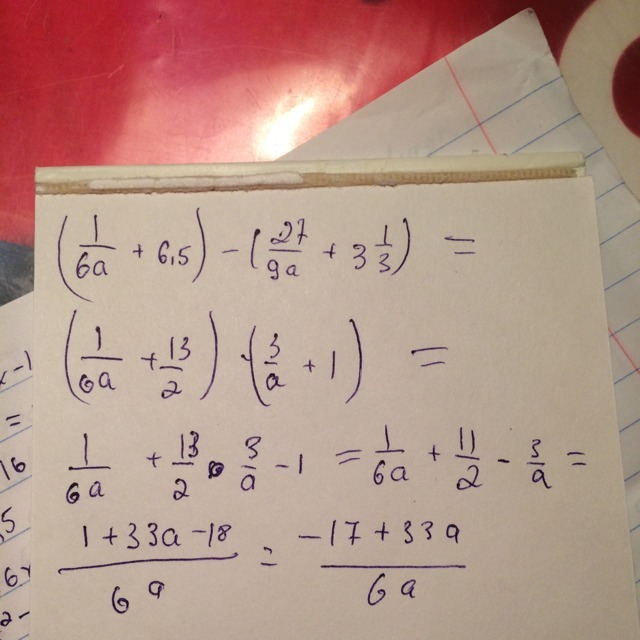 (1/6a + 6,5) - (27/9a + 3 1/3) =
(1/6a + 13/2) - (3/a + 1) =
1/6a + 13/2 - 3/a - 1 = 1/6a + 11/2 - 3/a =
(1+33a-18)/6a = (-17+33a)/6a
x-1
=
16
,5
2-